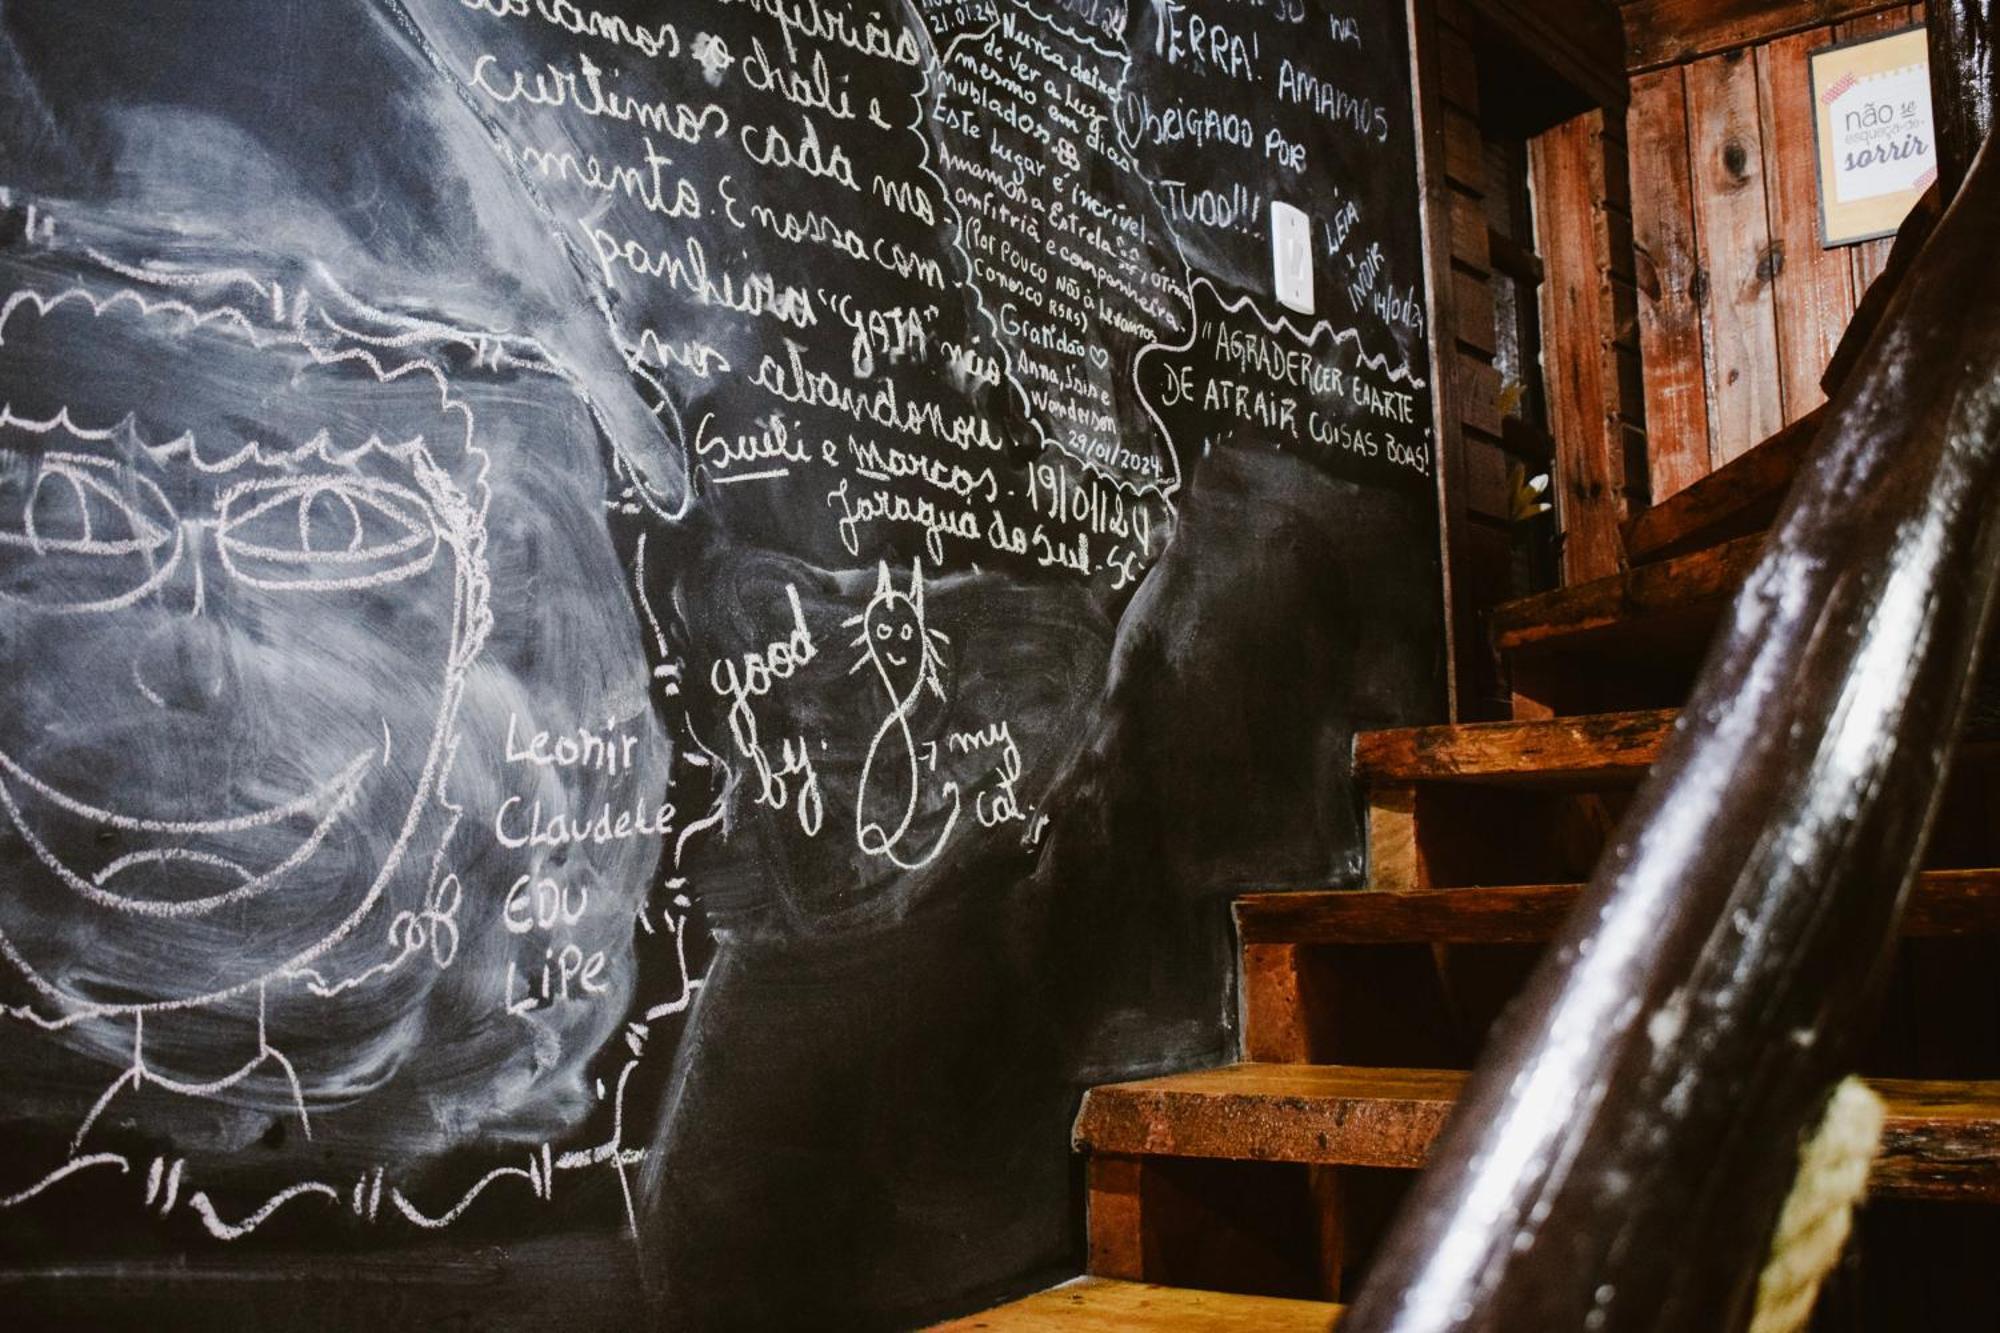 curtimos cada mo-
mento. E nossa com-
panheira "GATA" não
nos abandonou.
Sueli e Marcos. 19/01/24
Jaraguá do Sul - SC
21.01.24
Nunca deixe
de ver a Luz
mesmo em dias
nublados.
Este lugar é incrível.
Amamos a Estrela, ótima
anfitriã e companheira.
(Por pouco não à levamos
conosco rsrs)
Gratidão ♡
Anna, Isis e
Wanderson
29/01/2024
NA
TERRA! AMAMOS
OBRIGADO POR
TUDO!!!
LEIA
14/01/24
"AGRADERCER É A ARTE
DE ATRAIR COISAS BOAS!
good
by.
my
cat.
Leonir
Claudete
EDU
Lipe
não se
esqueça de
sorrir